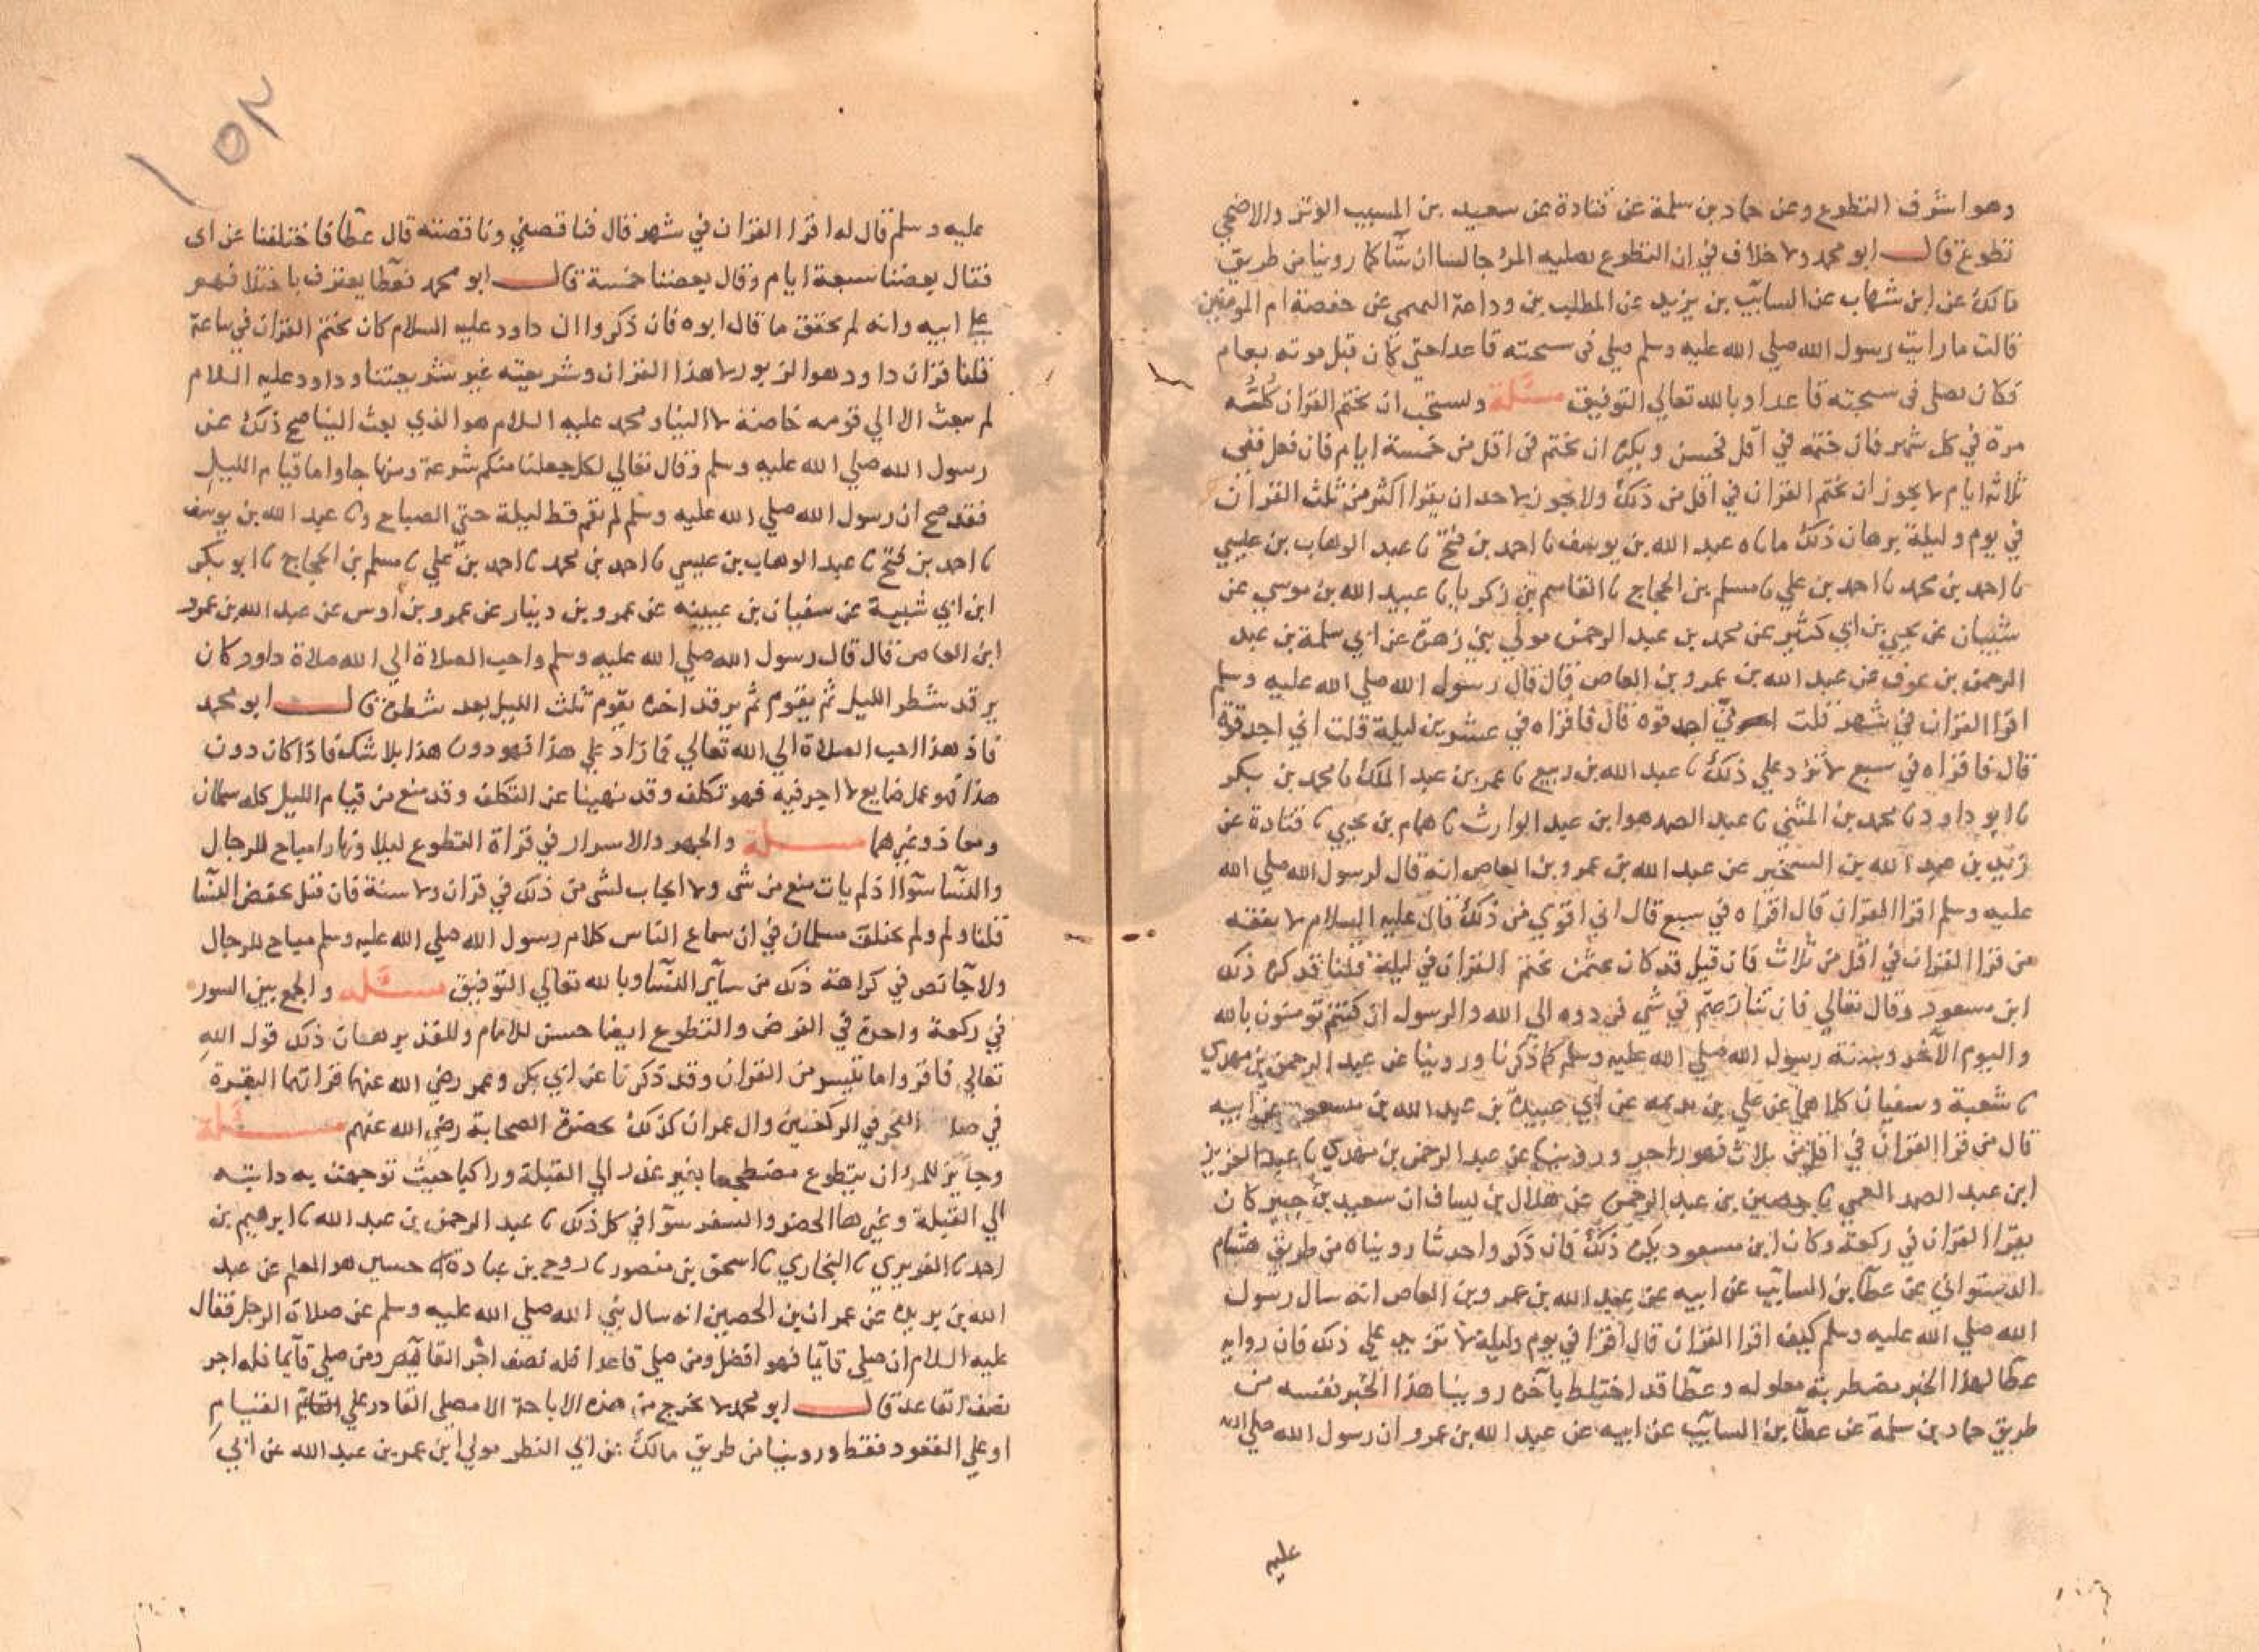 وهو اشرف التطوع وعن حماد بن سلمة عن قتادة عن سعيد بن المسيب الوتر والاضحى
تطوع قال ابو محمد ولا خلاف في ان التطوع يصليه المرء جالسا ان شآ كما روينا من طريق
مالك عن ابن شهاب عن السايب بن يزيد عن المطلب بن وداعة السهمي عن حفصة ام المومنين
قالت ما رايت رسول الله صلي الله عليه وسلم صلي في سبحته قاعدا حتي كان قبل موته بعام
فكان يصلى في سبحته قاعدا وبالله تعالي التوفيق مسئلة ويستحب ان يختم القران كله
مرة في كل شهر فان ختمه في اقل فحسن ويكره ان يختم في اقل من خمسة ايام فان فعل ففي
ثلاثة ايام لا يجوز ان يختم القران في اقل من ذلك ولا يجوز لاحد ان يقرا اكثر من ثلث القران
في يوم وليلة برهان ذلك ما ناه عبد الله بن يوسف نا احمد بن فتح نا عبد الوهاب بن عيسي
نا احمد بن محمد نا احمد بن علي نا مسلم بن الحجاج نا القاسم بن زكريا نا عبيد الله بن موسي عن
شيبان عن يحيي بن ابي كثير عن محمد بن عبد الرحمن مولي بني زهرة عن ابي سلمة بن عبد
الرحمن بن عوف عن عبد الله بن عمرو بن العاص قال قال رسول الله صلي الله عليه وسلم
اقرا القران في شهر قلت اني اجد قوه قال فاقراه في عشرين ليلة قلت اني اجد قوة
قال فاقراه في سبع لا تزد علي ذلك نا عبد الله بن ربيع نا عمر بن عبد الملك نا محمد بن بكر
نا ابو داود نا محمد بن المثني نا عبد الصمد هو ابن عبد الوارث نا همام بن يحيي نا قتادة عن
يزيد بن عبد الله بن الشخير عن عبد الله بن عمرو بن العاص انه قال لرسول الله صلي الله
عليه وسلم اقرا القران قال اقراه في سبع قال اني اقوي من ذلك قال عليه السلام لا يفقه
من قرا القران في اقل من ثلاث فان قيل قد كان عثمن يختم القران في ليلة قلنا قد كره ذلك
ابن مسعود وقال تعالي فان تنازعتم في شي فردوه الي الله والرسول ان كنتم تومنون بالله
واليوم الآخر وسنة رسول الله صلي الله عليه وسلم كما ذكرنا وروينا عن عبد الرحمن بن مهدي
نا شعبة وسفيان كلاهما عن علي بن بذيمه عن ابي عبيدة بن عبد الله بن مسعود عن ابيه
قال من قرا القران في اقل من ثلاث فهو راجز وروينا عن عبد الرحمن بن مهدي نا عبد العزيز
ابن عبد الصمد العمي نا حصين بن عبد الرحمن عن هلال بن يساف ان سعيد بن جبير كان
يقرا القران في ركعة وكان ابن مسعود يكره ذلك فان ذكروا حديثا رويناه من طريق هشام
الدستوائي عن عطآ بن السايب عن ابيه عن عبد الله بن عمرو بن العاص انه سال رسول
الله صلي الله عليه وسلم كيف اقرا القران قال اقرا في يوم وليلة لا تزد علي ذلك فان رواية
عطآ لهذا الخبر مضطربة معلوله وعطآ قد اختلط بآخره روينا هذا الخبر نفسه من
طريق حماد بن سلمة عن عطآ بن السايب عن ابيه عن عبد الله بن عمرو ان رسول الله صلي الله
عليه
١٥٢
عليه وسلم قال له اقرا القران في شهر قال فناقصني وناقصته قال عطآ فاختلفنا عن ابي
فقال بعضنا سبعة ايام وقال بعضنا خمسة قال ابو محمد فعطآ يعترف باختلافهم
علي ابيه وانه لم يحقق ما قال ابوه فان ذكروا ان داود عليه السلام كان يختم القران في ساعة
قلنا قران داود هو الزبور لا هذا القران وشريعته غير شريعتنا وداود عليه السلام
لم يبعث الا الي قومه خاصة لا الينا ومحمد عليه السلام هو الذي بعث الينا صح ذلك عن
رسول الله صلي الله عليه وسلم وقال تعالي لكل جعلنا منكم شرعة ومنهاجا واما قيام الليل
فقد صح ان رسول الله صلي الله عليه وسلم لم يقم قط ليلة حتي الصباح ونا عبد الله بن يوسف
نا احمد بن فتح نا عبد الوهاب بن عيسي نا احمد بن محمد نا احمد بن علي نا مسلم بن الحجاج نا ابو بكر
ابن ابي شيبة عن سفيان بن عيينه عن عمرو بن دينار عن عمرو بن اوس عن عبد الله بن عمرو
ابن العاص قال قال رسول الله صلي الله عليه وسلم واحب الصلاة الي الله صلاة داود كان
يرقد شطر الليل ثم يقوم ثم يرقد اخره يقوم ثلث الليل بعد شطره قال ابو محمد
فاذ هذا احب الصلاة الي الله تعالي فما زاد علي هذا فهو دون هذا بلا شك فاذا كان دون
هذا فهو عمل ضايع لا اجر فيه فهو تكلف وقد نهينا عن التكلف وقد منع من قيام الليل كله سلمان
ومعاذ وغيرهما مسئلة والجهر والاسرار في قراة التطوع ليلا ونهارا مباح للرجال
والنسآ سوآ اذ لم يات منع من شي ولا ايجاب لشي من ذلك في قران ولا سنة فان قيل تخفض النسآ
قلنا ولم ولم يختلف مسلمان في ان سماع الناس كلام رسول الله صلي الله عليه وسلم مباح للرجال
ولا جآ نص في كراهة ذلك من سآير النسآ وبالله تعالي التوفيق مسئله والجمع بين السور
في ركعة واحدة في الفرض والتطوع ايضا حسن للامام وللفذ برهان ذلك قول الله
تعالي فاقروا ما تيسر من القران وقد ذكرنا عن ابي بكر وعمر رضي الله عنهما قراتهما البقرة
في صلا الفجر في الركعتين وال عمران كذلك بحضرة الصحابة رضي الله عنهم مسئلة
وجايز للمرء ان يتطوع مضطجعا بغير عذر الي القبلة وراكبا حيث توجهت به دابته
الي القبلة وغيرها الحضر والسفر سوآ في كل ذلك نا عبد الرحمن بن عبد الله نا ابرهيم بن
احمد نا الفربري نا البخاري نا اسحق بن منصور نا روح بن عبادة نا حسين هو المعلم عن عبد
الله بن بريدة عن عمران بن الحصين انه سال نبي الله صلي الله عليه وسلم عن صلاة الرجل فقال
عليه السلام ان صلي قآيما فهو افضل ومن صلي قاعدا فله نصف اجر القآيم ومن صلي قآيما فله اجر
نصف القاعد قال ابو محمد لا يخرج من هذه الاباحة الا مصلي القادر علي القيام
او علي القعود فقط وروينا من طريق مالك عن ابي النظر مولي ابن عمر بن عبد الله عن ابي